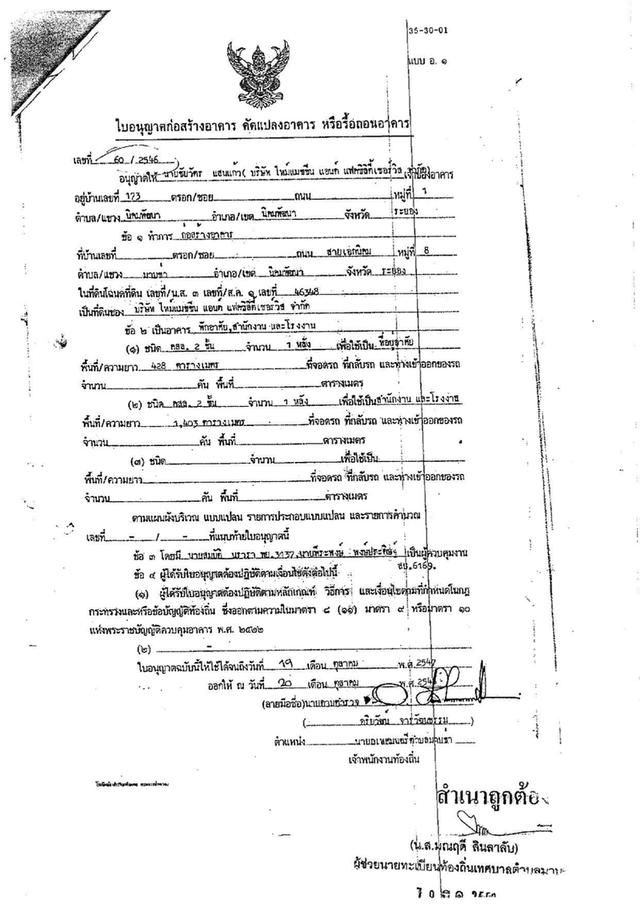 35-30-01
แบบ อ. ๑
ใบอนุญาตก่อสร้างอาคาร ดัดแปลงอาคาร หรือรื้อถอนอาคาร
เลขที่ 60 / 2546
อนุญาตให้ แสนแก้ว ( บริษัท ใหม่แมชชีน แอนด์ เจ้าของอาคาร
อยู่บ้านเลขที่ 173 ตรอก/ซอย ถนน หมู่ที่ 1
ตำบล/แขวง นิคมพัฒนา อำเภอ/เขต นิคมพัฒนา จังหวัด ระยอง
ข้อ ๑ ทำการ ก่อสร้างอาคาร
ที่บ้านเลขที่ ตรอก/ซอย ถนน หมู่ที่ 8
ตำบล/แขวง มาบข่า อำเภอ/เขต นิคมพัฒนา จังหวัด ระยอง
ในที่ดินโฉนดที่ดิน เลขที่/น.ส. ๓ เลขที่/ส.ค. ๑ เลขที่ 46348
เป็นที่ดินของ บริษัท ใหม่แมชชีน แอนด์ จำกัด
ข้อ ๒ เป็นอาคาร พักอาศัย,สำนักงาน และโรงงาน
(๑) ชนิด คสล. 2 ชั้น จำนวน 1 หลัง เพื่อใช้เป็น ที่อยู่อาศัย
พื้นที่/ความยาว 428 ตารางเมตร ที่จอดรถ ที่กลับรถ และทางเข้าออกของรถ
จำนวน คัน พื้นที่ ตารางเมตร
(๒) ชนิด คสล. 2 ชั้น จำนวน 1 หลัง เพื่อใช้เป็น สำนักงาน และโรงงาน
พื้นที่/ความยาว 1,403 ตารางเมตร ที่จอดรถ ที่กลับรถ และทางเข้าออกของรถ
จำนวน คัน พื้นที่ ตารางเมตร
(๓) ชนิด จำนวน เพื่อใช้เป็น
พื้นที่/ความยาว ที่จอดรถ ที่กลับรถ และทางเข้าออกของรถ
จำนวน คัน พื้นที่ ตารางเมตร
ตามแผนผังบริเวณ แบบแปลน รายการประกอบแบบแปลน และรายการคำนวณ
เลขที่ - / - ที่แนบท้ายใบอนุญาตนี้
ข้อ ๓ โดยมี นายสมบัติ เป็นผู้ควบคุมงาน
ข้อ ๔ ผู้ได้รับใบอนุญาตต้องปฏิบัติตามเงื่อนไขดังต่อไปนี้ 6169.
(๑) ผู้ได้รับใบอนุญาตต้องปฏิบัติตามหลักเกณฑ์ วิธีการ และเงื่อนไขตามที่กำหนดในกฎ
กระทรวงและหรือข้อบัญญัติท้องถิ่น ซึ่งออกตามความในมาตรา ๘ (๑๑) มาตรา ๙ หรือมาตรา ๑๐
แห่งพระราชบัญญัติควบคุมอาคาร พ.ศ. ๒๕๒๒
(๒) -
ใบอนุญาตฉบับนี้ให้ใช้ได้จนถึงวันที่ 19 เดือน ตุลาคม พ.ศ. 2547
ออกให้ ณ วันที่ 20 เดือน ตุลาคม พ.ศ.
(ลายมือชื่อ)
( )
ตำแหน่ง
เจ้าพนักงานท้องถิ่น
สำเนาถูกต้อง
(น.ส.มณฤดี สินลาลับ)
ผู้ช่วยนายทะเบียนท้องถิ่นเทศบาลตำบลมาบ